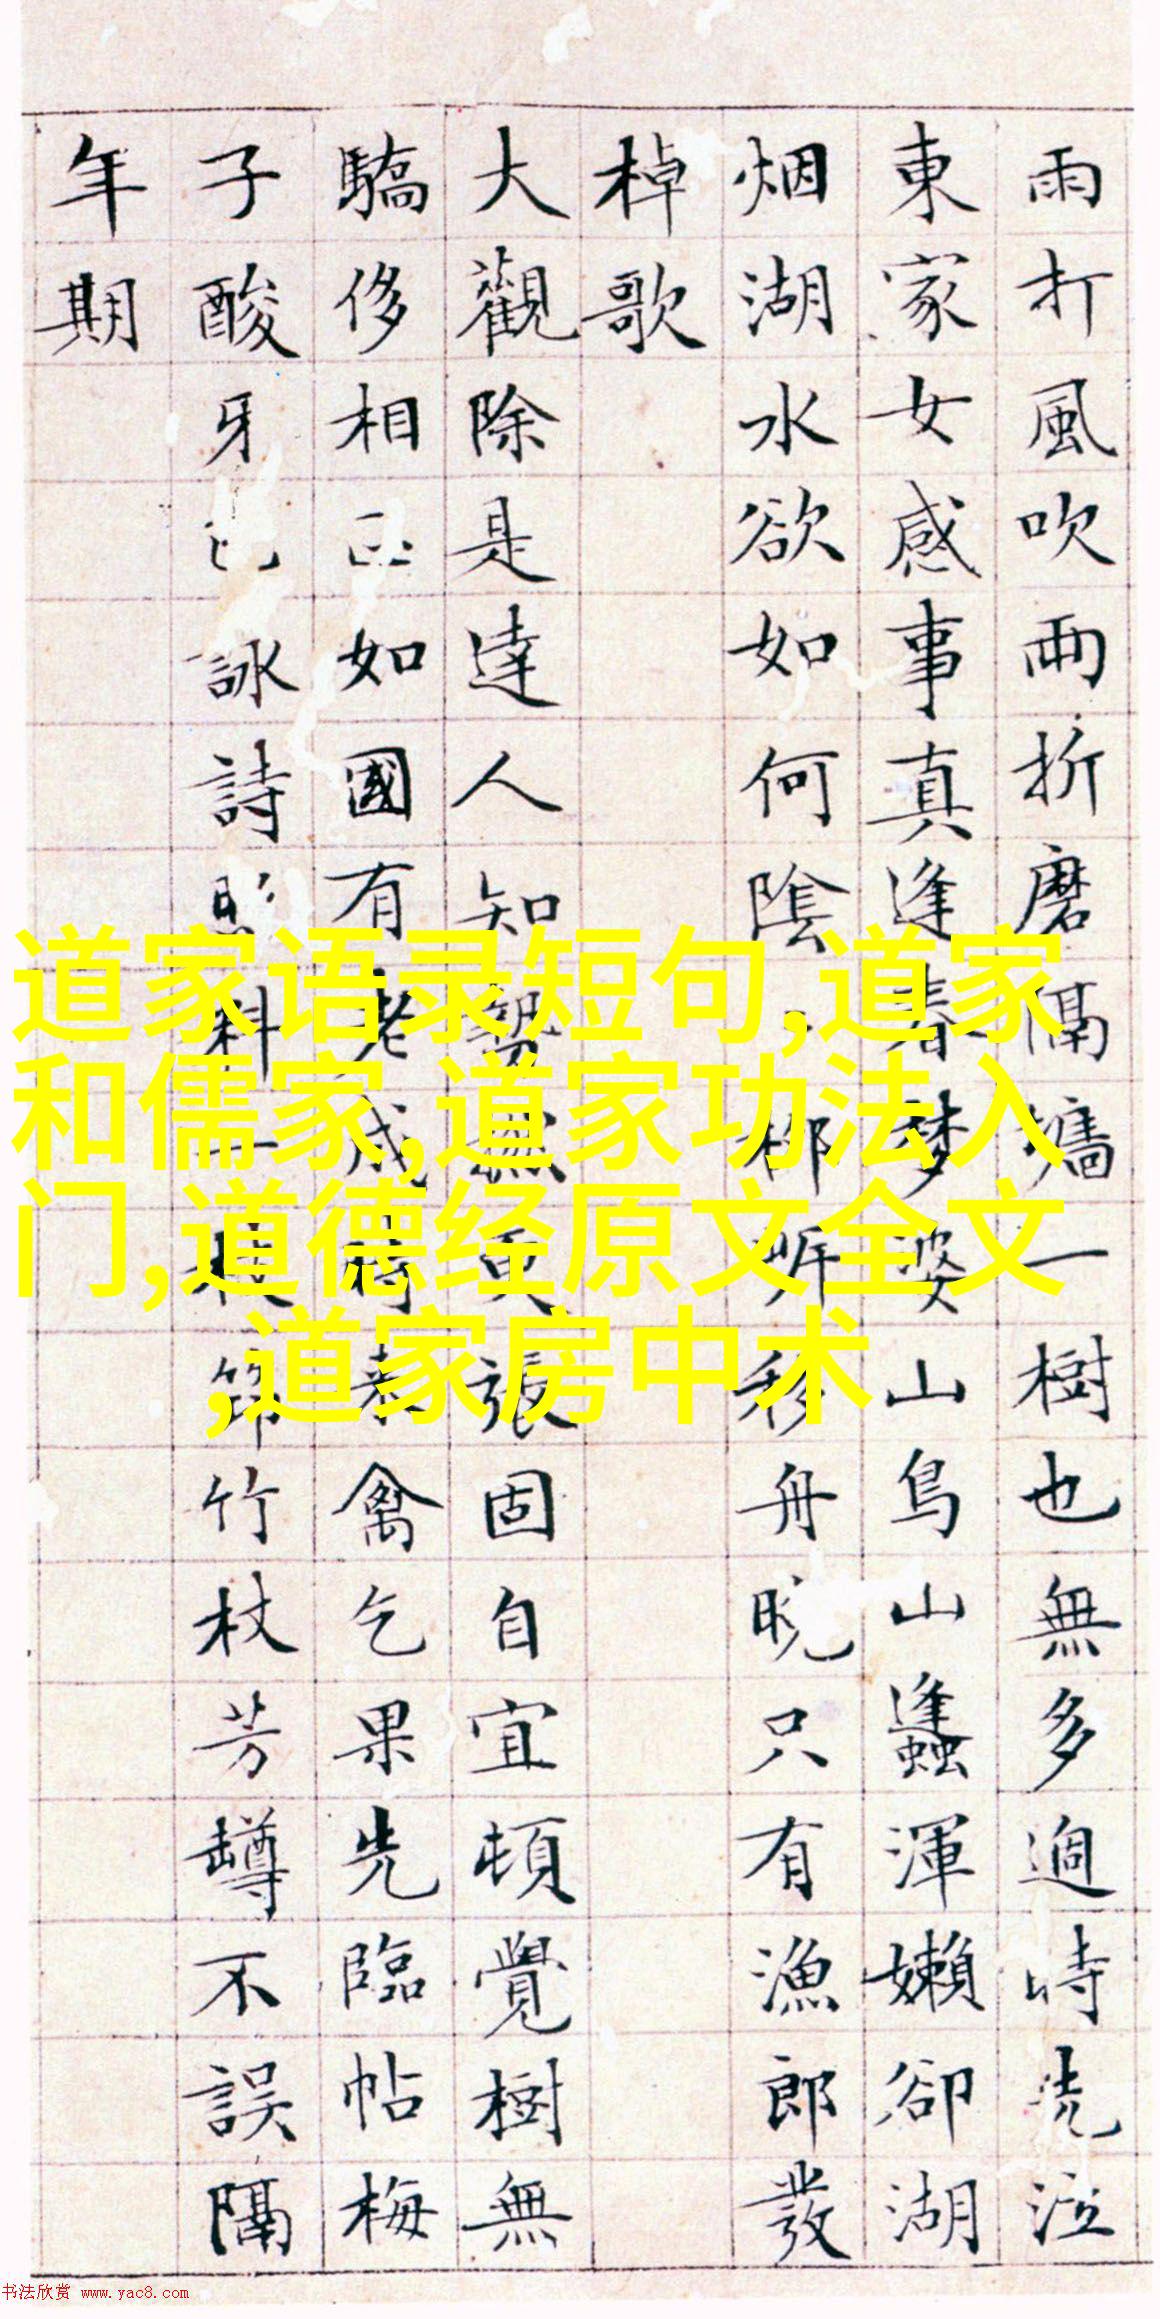 雨打風吹雨折磨隔墻一樹也無多過時洗泣
東家女感事真逢春夢婆山鳥山蠭渾嬾卻湖
烟湖水欲如何陰移舟晚只有漁郎發
棹歌
大觀除是達人知張固自宜頓覺樹無
驕侈相如國有老成禽乞果先臨帖梅
子酸牙詠詩料一枝筇竹杖芳罇不誤隔
年期
道家语录短句,道家
和儒家,道家功法入
门,道德经原文全文
,道家房中术
书法欣赏 www.yac8.com